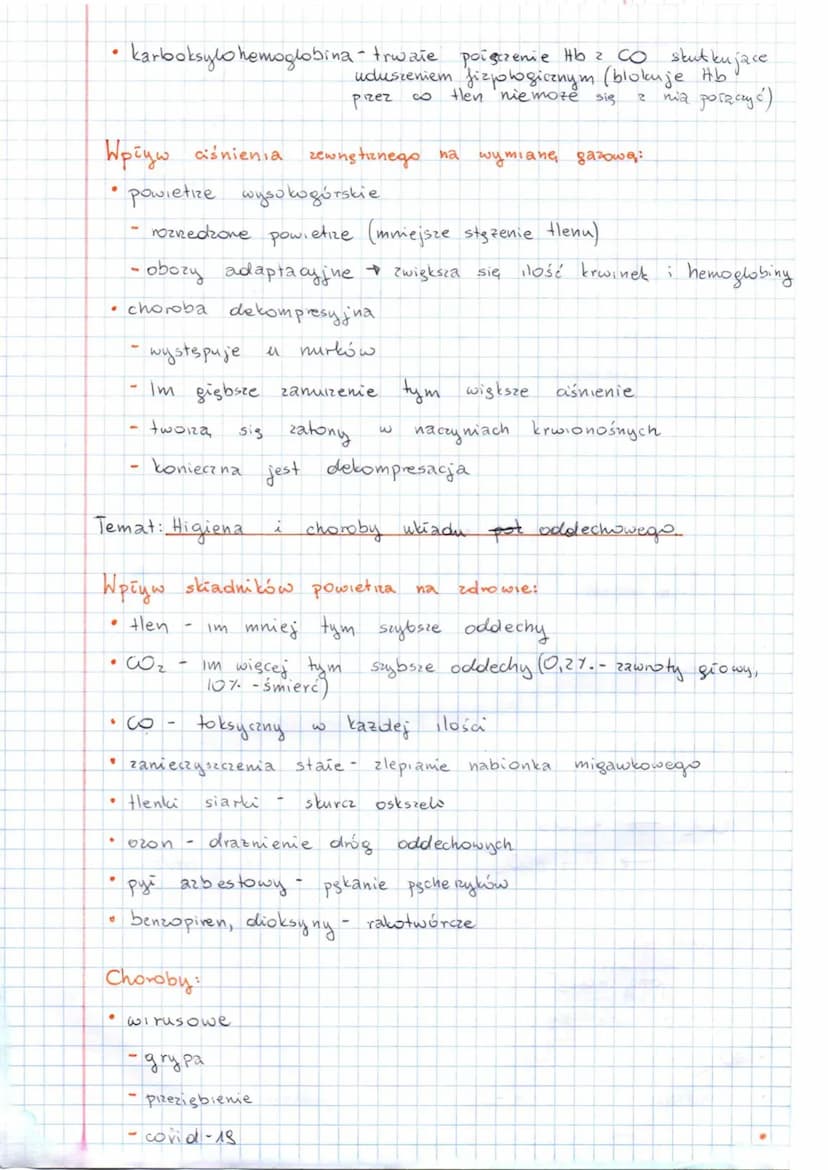 • karboksylohemoglobina - trwałe połączenie Hb z CO skutkujące
uduszeniem fizjologicznym (blokuje Hb
przez co tlen niemoże się z nią połączyć)
Wpływ ciśnienia zewnętrznego na wymianę gazową:
• powietrze wysokogórskie
- rozrzedzone powietrze (mniejsze stężenie tlenu)
- obozy adaptacyjne → zwiększa się ilość krwinek i hemoglobiny
• choroba dekompresyjna
- występuje u nurków
- Im głębsze zanurzenie tym większe ciśnienie
- tworzą się zatory w naczyniach krwionośnych
- konieczna jest dekompresacja
Temat: Higiena i choroby układu oddechowego
Wpływ składników powietrza na zdrowie:
• tlen - im mniej tym szybsze oddechy
• CO₂ - im więcej tym szybsze oddechy (0,2% - zawroty głowy,
10% - śmierć)
• CO - toksyczny w każdej ilości
• zanieczyszczenia stałe - zlepianie nabłonka migawkowego
• tlenki siarki - skurcz oskszelo
• ozon - drażnienie dróg oddechowych
• pył azbestowy - pękanie pęcherzyków
• benzopiren, dioksyny - rakotwórcze
Choroby:
• wirusowe
- grypa
- przeziębienie
- covid-19